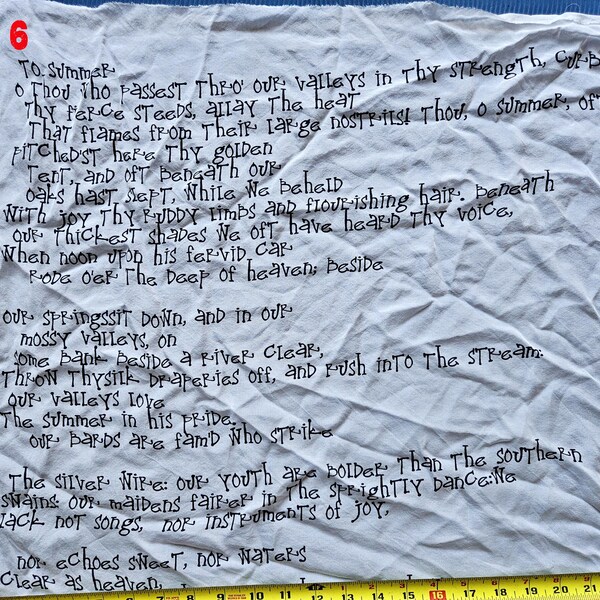 6
To Summer
O Thou who passest thro' our valleys in thy strength, curb
Thy fierce steeds, allay the heat
That flames from their large nostrils! Thou, O Summer, oft
Pitched'st here thy golden
Tent, and oft beneath our
Oaks hast slept, while we beheld
With joy thy ruddy limbs and flourishing hair. Beneath
Our thickest shades we oft have heard thy voice,
When noon upon his fervid car
Rode o'er the deep of heaven; beside
our springssit down, and in our
mossy valleys, on
some bank beside a river clear,
Throw thysilk draperies off, and rush into the stream:
Our valleys love
The summer in his pride.
Our bards are fam'd who strike
The silver wire: our youth are bolder than the southern
swains: our maidens fairer in the sprightly dance:We
lack not songs, nor instruments of joy,
nor echoes sweet, nor waters
clear as heaven,
7 8 9 10 11 12 13 14 15 16 17 18 19 20 21